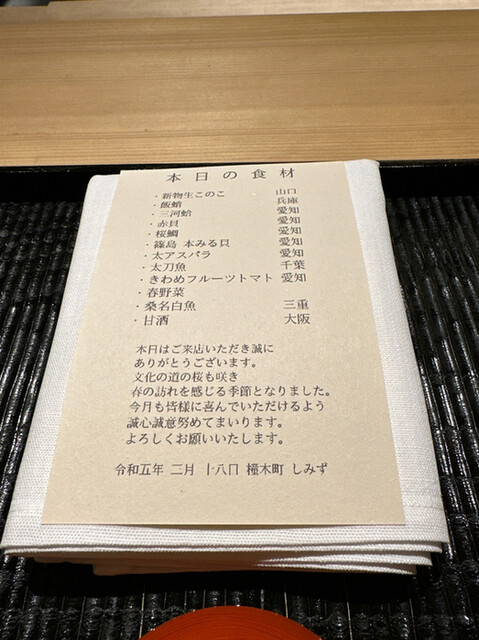 本日の食材
・新物生このこ 山口
・飯蛸 兵庫
・三河蛤 愛知
・赤貝 愛知
・桜鯛 愛知
・篠島 本みる貝 愛知
・太アスパラ 愛知
・太刀魚 千葉
・きわめフルーツトマト 愛知
・春野菜
・桑名白魚 三重
・甘酒 大阪
本日はご来店いただき誠に
ありがとうございます。
文化の道の桜も咲き
春の訪れを感じる季節となりました。
今月も皆様に喜んでいただけるよう
誠心誠意努めてまいります。
よろしくお願いいたします。
令和五年 二月 十八日 橦木町 しみず